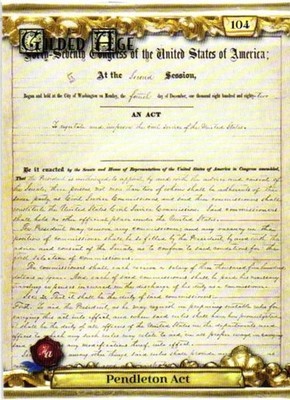 104
Gilded Age
Forty-Seventh Congress of the United States of America;
At the Second Session,
Begun and held at the City of Washington on Monday, the fourth day of December, one thousand eight hundred and eighty-two
AN ACT
To regulate and improve the civil service of the United States.
Be it enacted by the Senate and House of Representatives of the United States of America in Congress assembled,
That the President is authorized to appoint, by and with the advice and consent of
the Senate, three persons, not more than two of whom shall be adherents of the
same party, as Civil Service Commissioners, and said three commissioners shall
constitute the United States Civil Service Commission. Said commissioners
shall hold no other official place under the United States.
The President may remove any commissioner; and any vacancy in the
position of commissioner shall be so filled by the President, by and with the
advice and consent of the Senate, as to conform to said conditions for the
first selection of commissioners.
The commissioners shall each receive a salary of three thousand five hundred
dollars a year. And each of said commissioners shall be paid his necessary
traveling expenses incurred in the discharge of his duty as a commissioner.
Sec. 2. That it shall be the duty of said commissioners:
First. To aid the President, as he may request, in preparing suitable rules for
carrying this act into effect, and when said rules shall have been promulgated
it shall be the duty of all officers of the United States in the departments and
offices to which any such rules may relate to aid, in all proper ways, in carry
said rules, and any modifications thereof, into effect.
Second. And, among other things, said rules shall provide
Pendleton Act